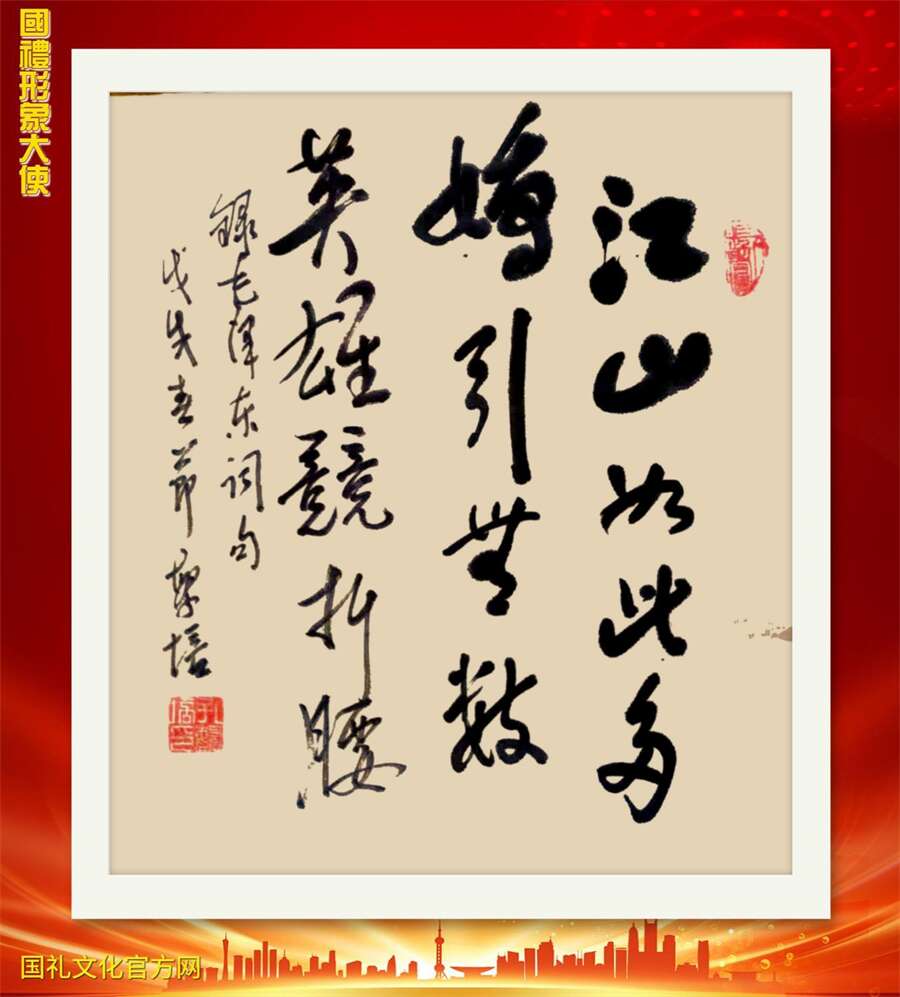 國禮形象大使
江山如此多
嬌引無數
英雄競折腰
錄毛泽东词句
戊戌春節
国礼文化官方网